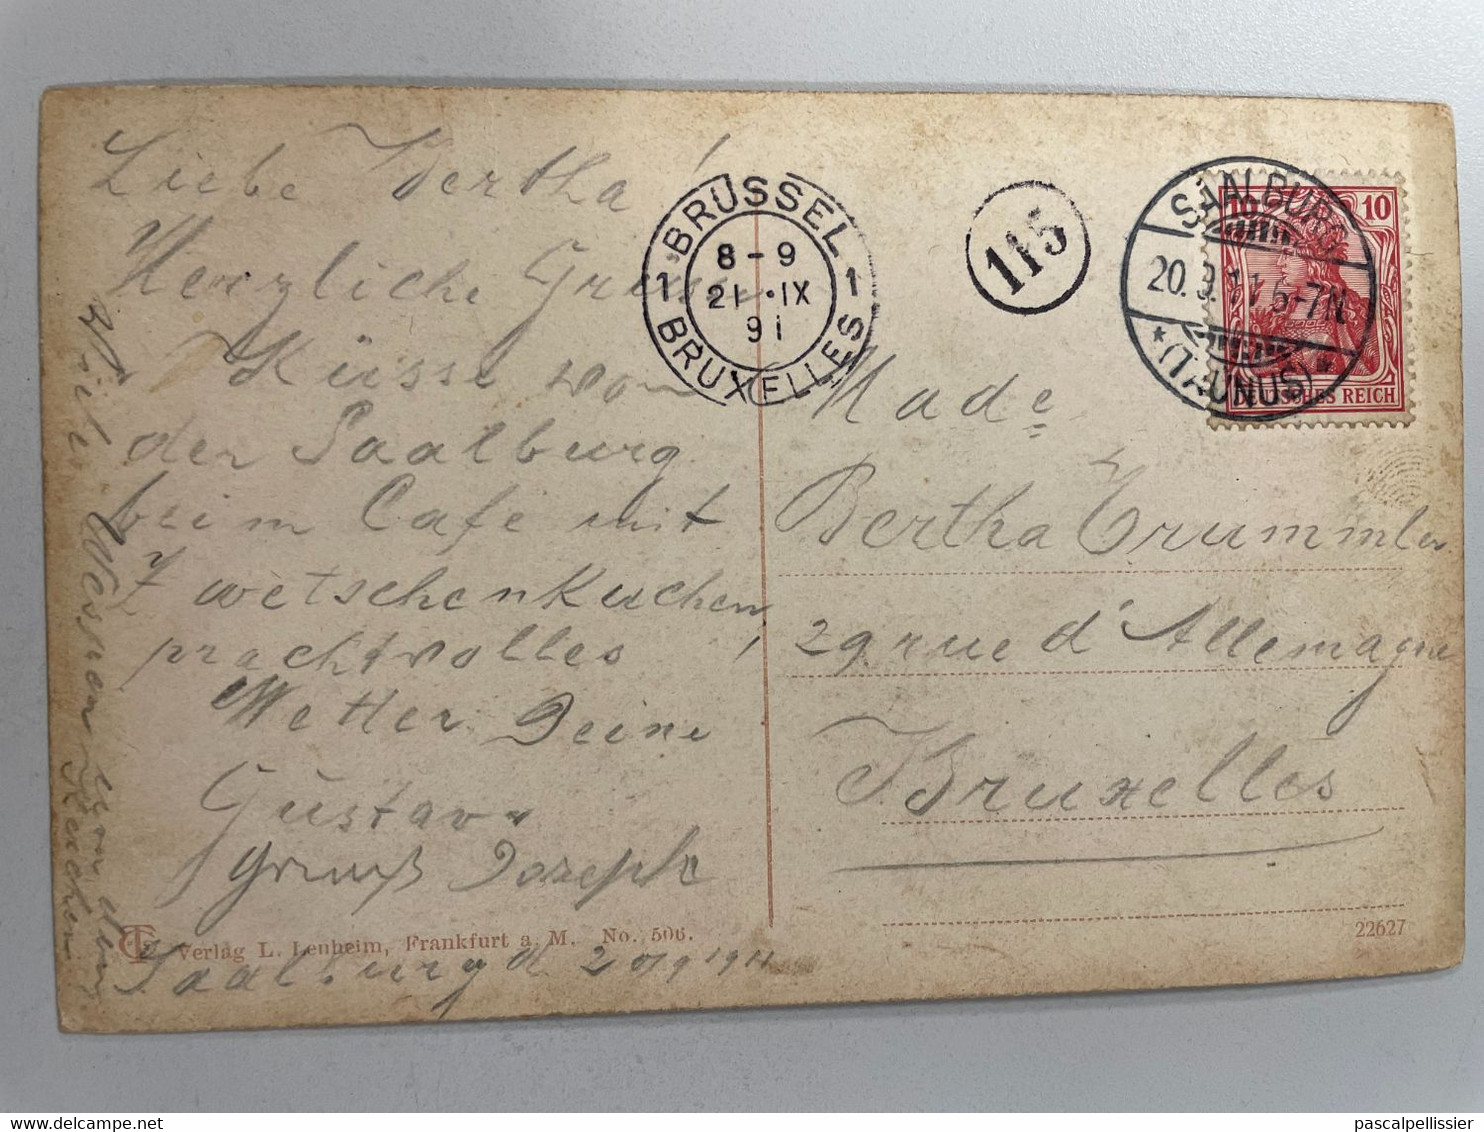 Liebe Bertha!
Herzliche Grüsse
Küsse von
der Saalburg
beim Cafe mit
Zwetschenkuchen,
prachtvolles
Wetter Deine
Gustav
Gruß Joseph
Saalburg d 20/9 1911
Verlag L. Lenheim, Frankfurt a. M. No. 506.
BRÜSSEL
1 1
8-9
21·IX
91
BRUXELLES
115
SAALBURG
20.9.11 6-7N.
*(TAUNUS)*
10 10
DEUTSCHES REICH
Made
Bertha Crummler
29 rue d'Allemagne
Bruxelles
22627
pascalpellissier